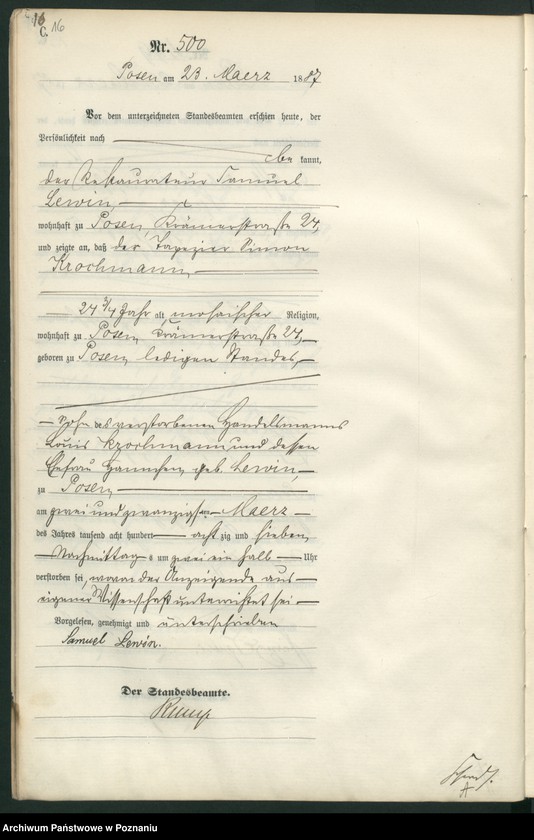 16
C. 16
Nr. 500
Posen am 23. Maerz 1887
Vor dem unterzeichneten Standesbeamten erschien heute, der
Persönlichkeit nach
be kannt,
der Restaurateur Samuel
Lewin,
wohnhaft zu Posen, Krämerstraße 24,
und zeigte an, daß der Tapezier Simon
Krochmann,
24 3/4 Jahr alt, mosaischer Religion,
wohnhaft zu Posen, Krämerstraße 24,
geboren zu Posen, ledigen Standes,
Sohn des verstorbenen Handelsmannes
Louis Krochmann, und dessen
Ehefrau Hannchen, geb. Lewin,
zu Posen,
am zwei und zwanzigsten Maerz
des Jahres tausend acht hundert acht zig und sieben,
Nachmittags um zwei ein halb Uhr
verstorben sei, wovon der Anzeigende aus
eigener Wissenschaft unterrichtet sei
Vorgelesen, genehmigt und unterschrieben
Samuel Lewin.
Der Standesbeamte.
Archiwum Państwowe w Poznaniu